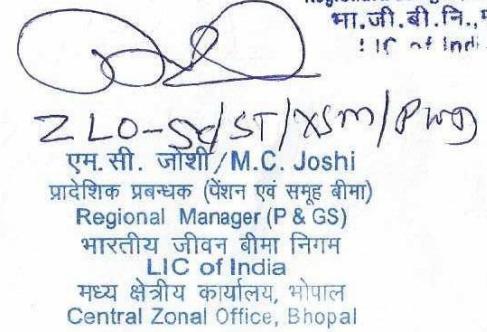 भा.जी.बी.नि.,
LIC of Indi
ZLO-SC/ST/XSM/PWD
एम. सी. जोशी/M.C. Joshi
प्रादेशिक प्रबन्धक (पेंशन एवं समूह बीमा)
Regional Manager (P & GS)
भारतीय जीवन बीमा निगम
LIC of India
मध्य क्षेत्रीय कार्यालय, भोपाल
Central Zonal Office, Bhopal